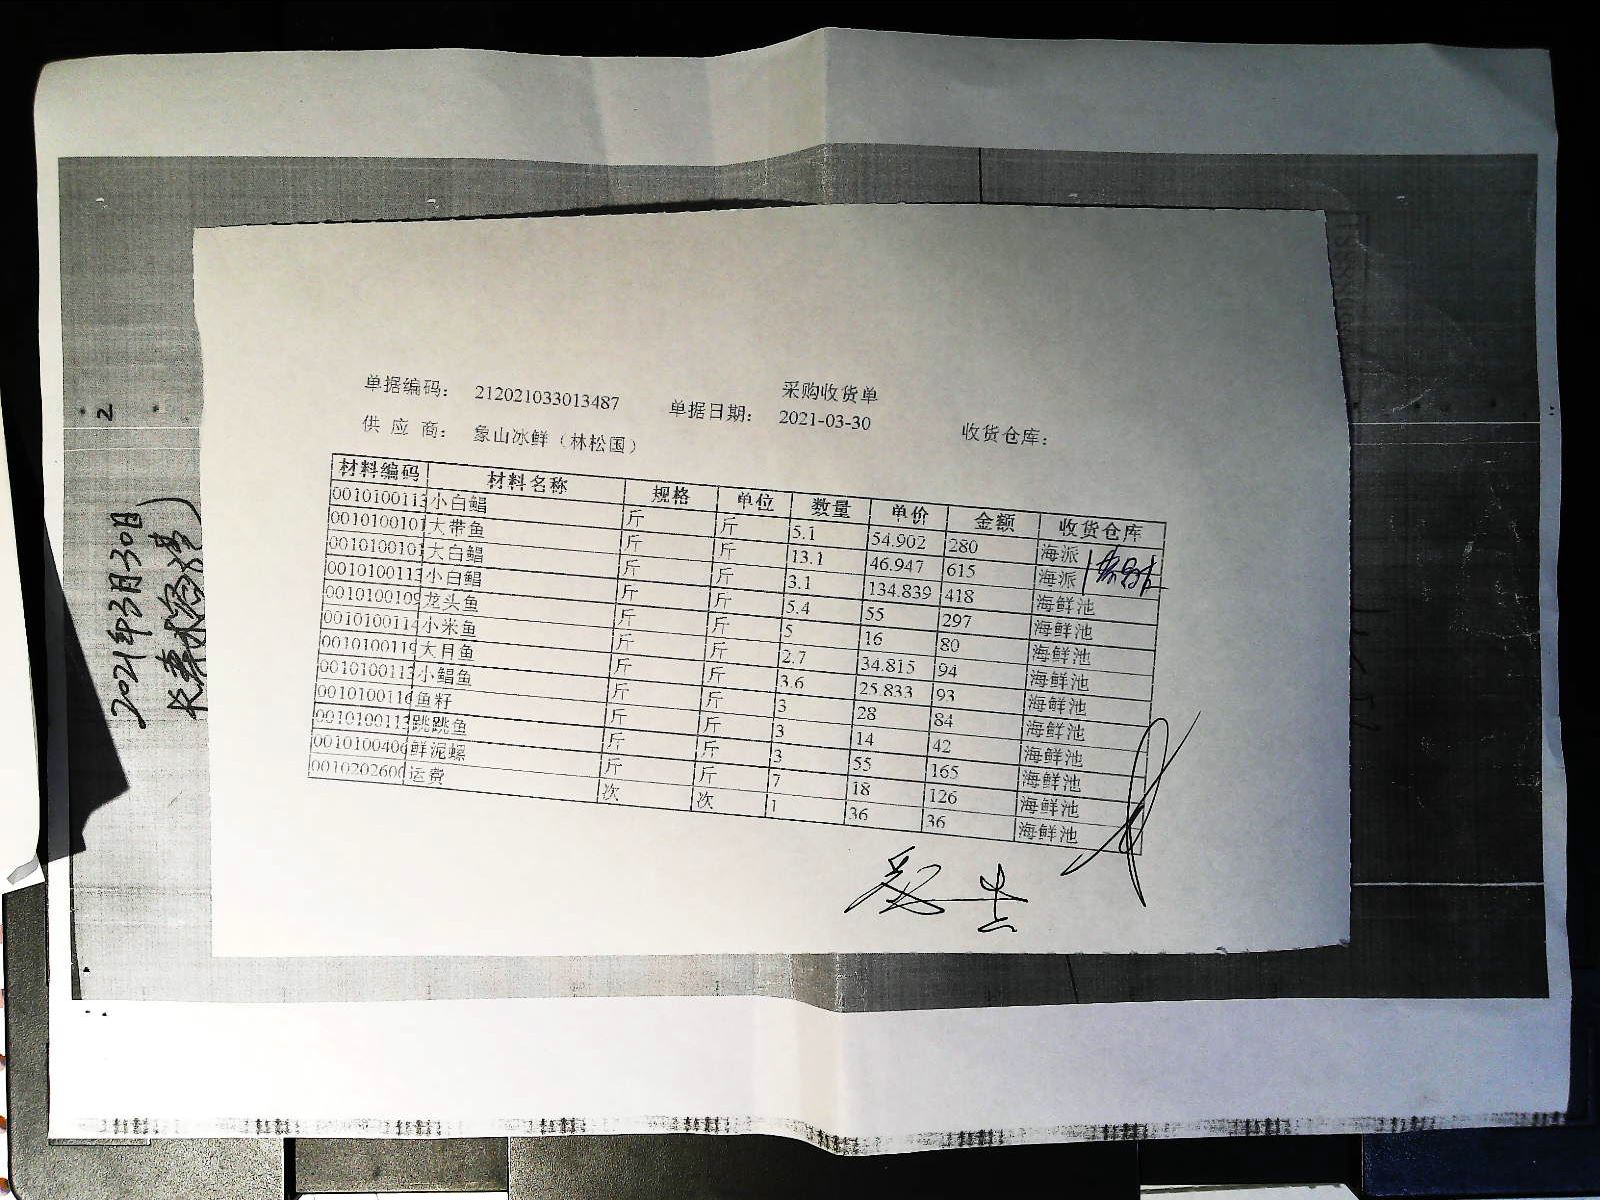 采购收货单
单据编码： 212021033013487 单据日期： 2021-03-30 收货仓库：
供 应 商： 象山冰鲜（林松国）
材料编码 材料名称 规格 单位 数量 单价 金额 收货仓库
0010100113 小白鲳 斤 斤 5.1 54.902 280 海派
0010100101 大带鱼 斤 斤 13.1 46.947 615 海派
0010100101 大白鲳 斤 斤 3.1 134.839 418 海鲜池
0010100113 小白鲳 斤 斤 5.4 55 297 海鲜池
0010100109 龙头鱼 斤 斤 5 16 80 海鲜池
0010100114 小米鱼 斤 斤 2.7 34.815 94 海鲜池
0010100119 大目鱼 斤 斤 3.6 25.833 93 海鲜池
0010100113 小鲳鱼 斤 斤 3 28 84 海鲜池
0010100116 鱼籽 斤 斤 3 14 42 海鲜池
0010100113 跳跳鱼 斤 斤 3 55 165 海鲜池
0010100406 鲜泥螺 斤 斤 7 18 126 海鲜池
0010202600 运费 次 次 1 36 36 海鲜池
2021年3月30日
2